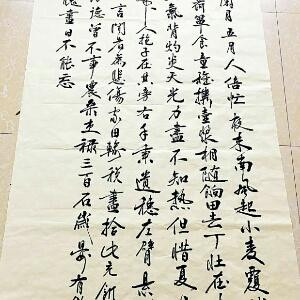 閑月五月人倍忙夜来南風起小麦覆
荷箪食童稚攜壺漿相随餉田去丁壮在
氣背灼炎天光力盡不知熱但惜夏
人抱子在其旁右手秉遺穗左臂悬
言聞者為悲傷家田輸税盡拾此充飢
德曾不事農桑吏禄三百石歲晏有
愧盡日不能忘